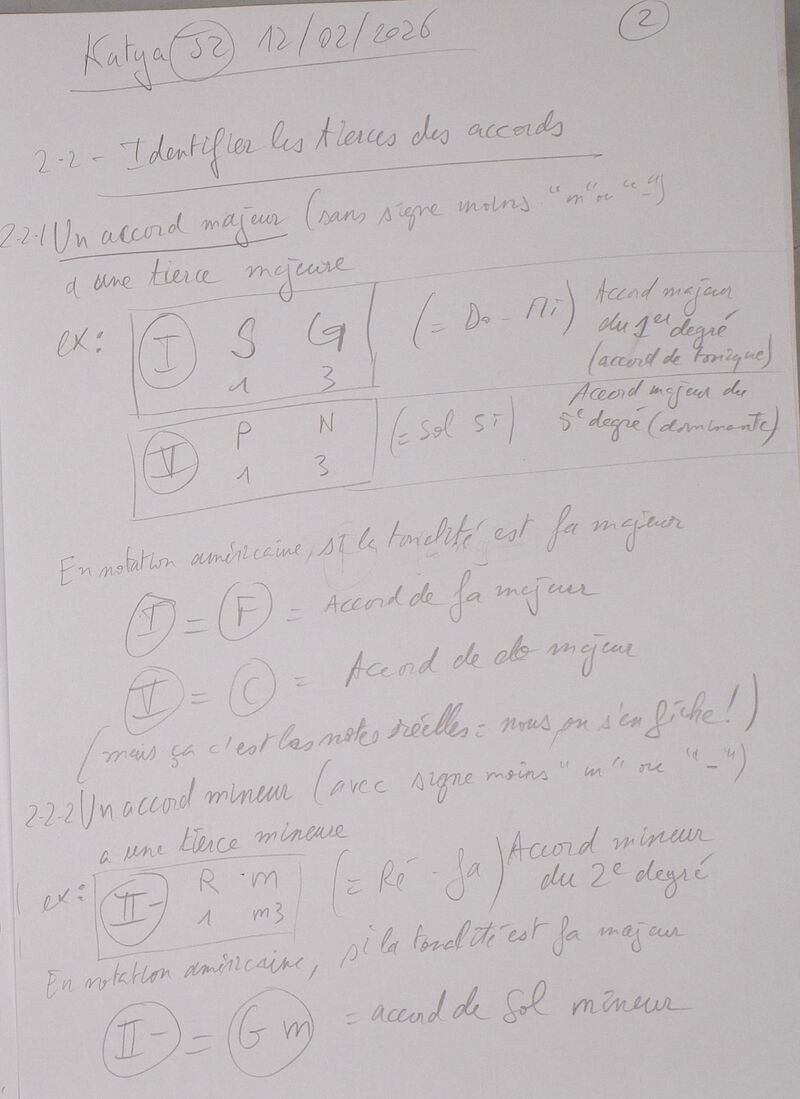 Katya S2 12/02/2026
2
2-2- Identifier les tierces des accords
2-2-1 Un accord majeur (sans signe moins "m" ou "-")
a une tierce majeure
ex: I S G (= Do - Mi) Accord majeur
1 3 du 1er degré
(accord de tonique)
V P N (= Sol Si) Accord majeur du
1 3 5e degré (dominante)
En notation américaine, si la tonalité est fa majeur
I = F = Accord de fa majeur
V = C = Accord de do majeur
(mais ça c'est les notes réelles = nous on s'en fiche!)
2-2-2 Un accord mineur (avec signe moins "m" ou "-")
a une tierce mineure
ex: II- R m (= Ré - fa) Accord mineur
1 m3 du 2e degré
En notation américaine, si la tonalité est fa majeur
II- = Gm = accord de Sol mineur